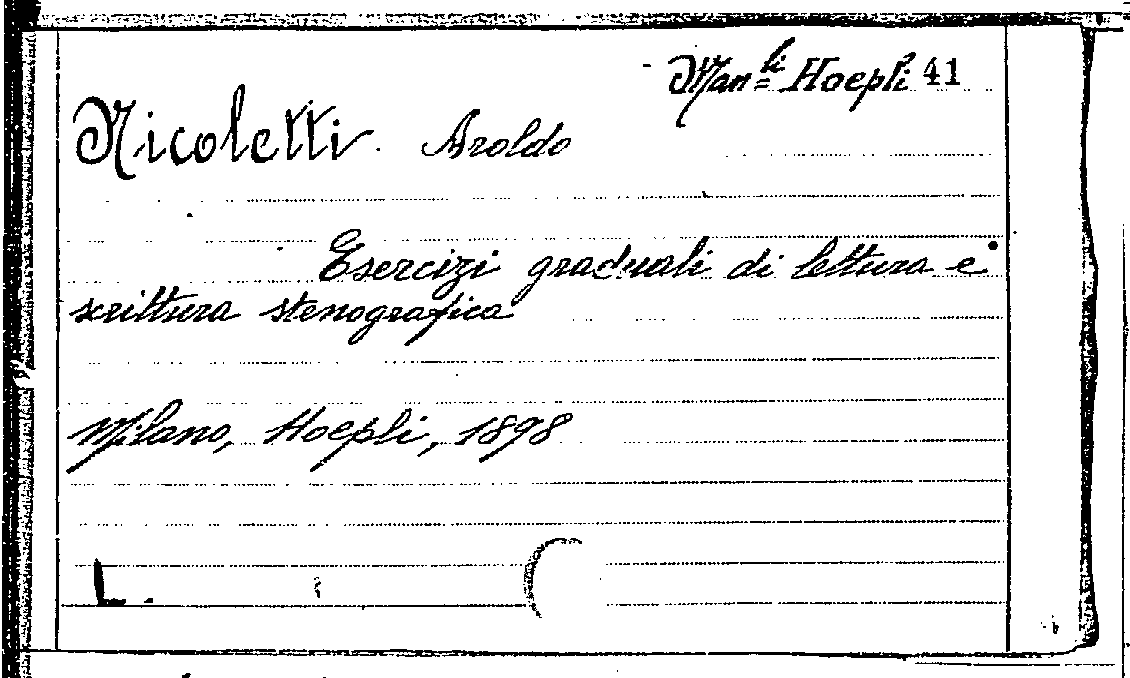 Man.li Hoepli 41
Nicoletti Aroldo
Esercizi graduali di lettura e
scrittura stenografica
Milano, Hoepli, 1898
L.